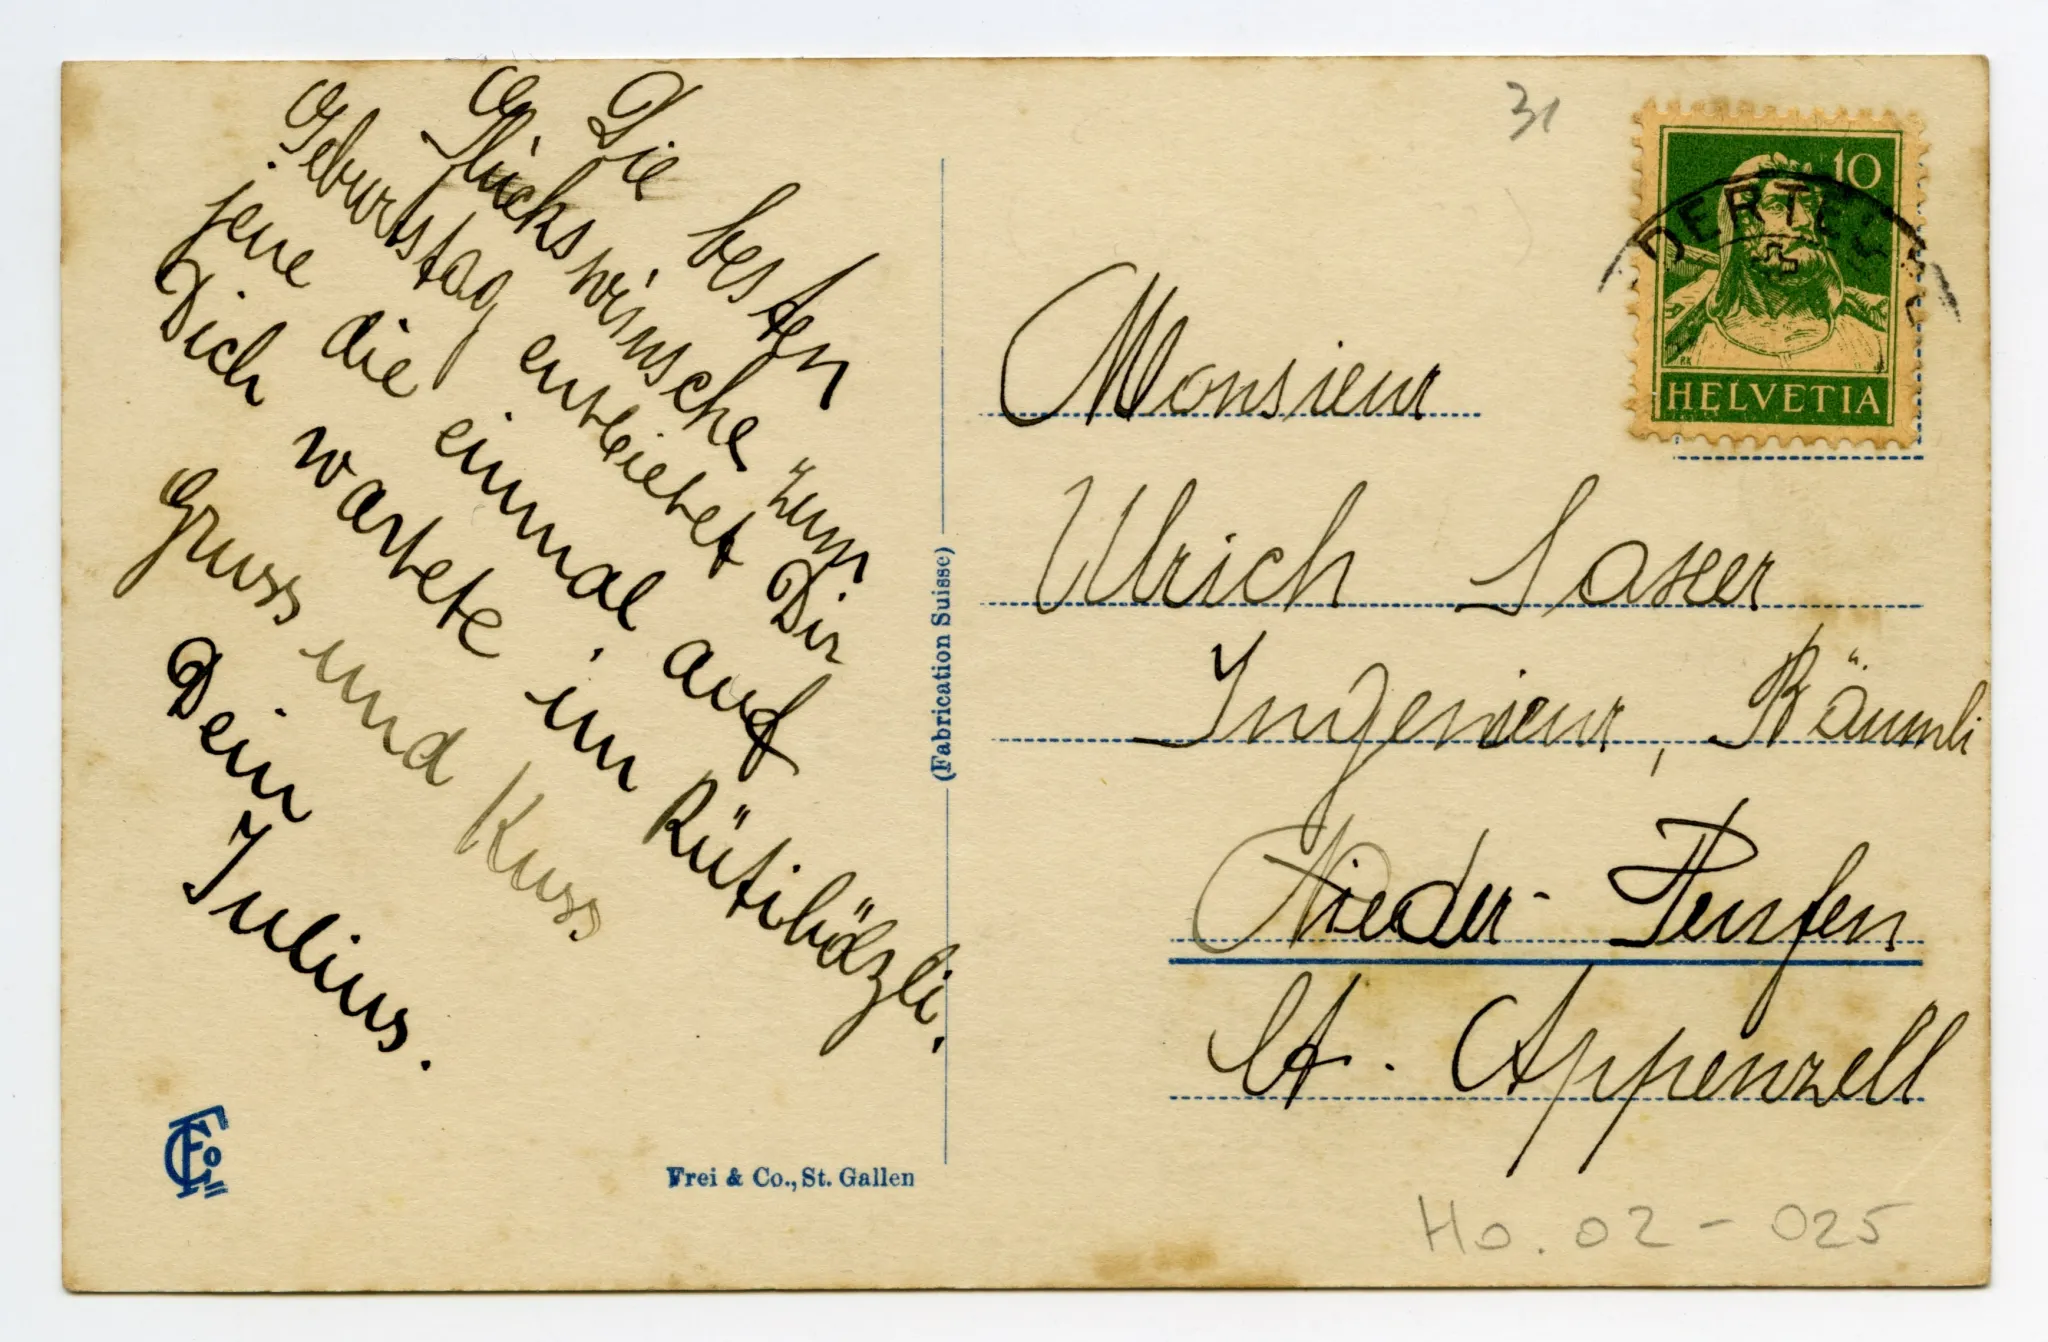 Die besten
Glückswünsche zum
Geburtstag entbietet Dir
jene die einmal auf
Dich wartete im Rütihölzli.
Gruss und Kuss
Dein
Julius.
(Fabrication Suisse)
Frei & Co., St. Gallen
31
10
HELVETIA
Monsieur
Ulrich Saxer
Ingenieur, Räumli
Nieder-Teufen
Kt. Appenzell
Ho. 02 - 025